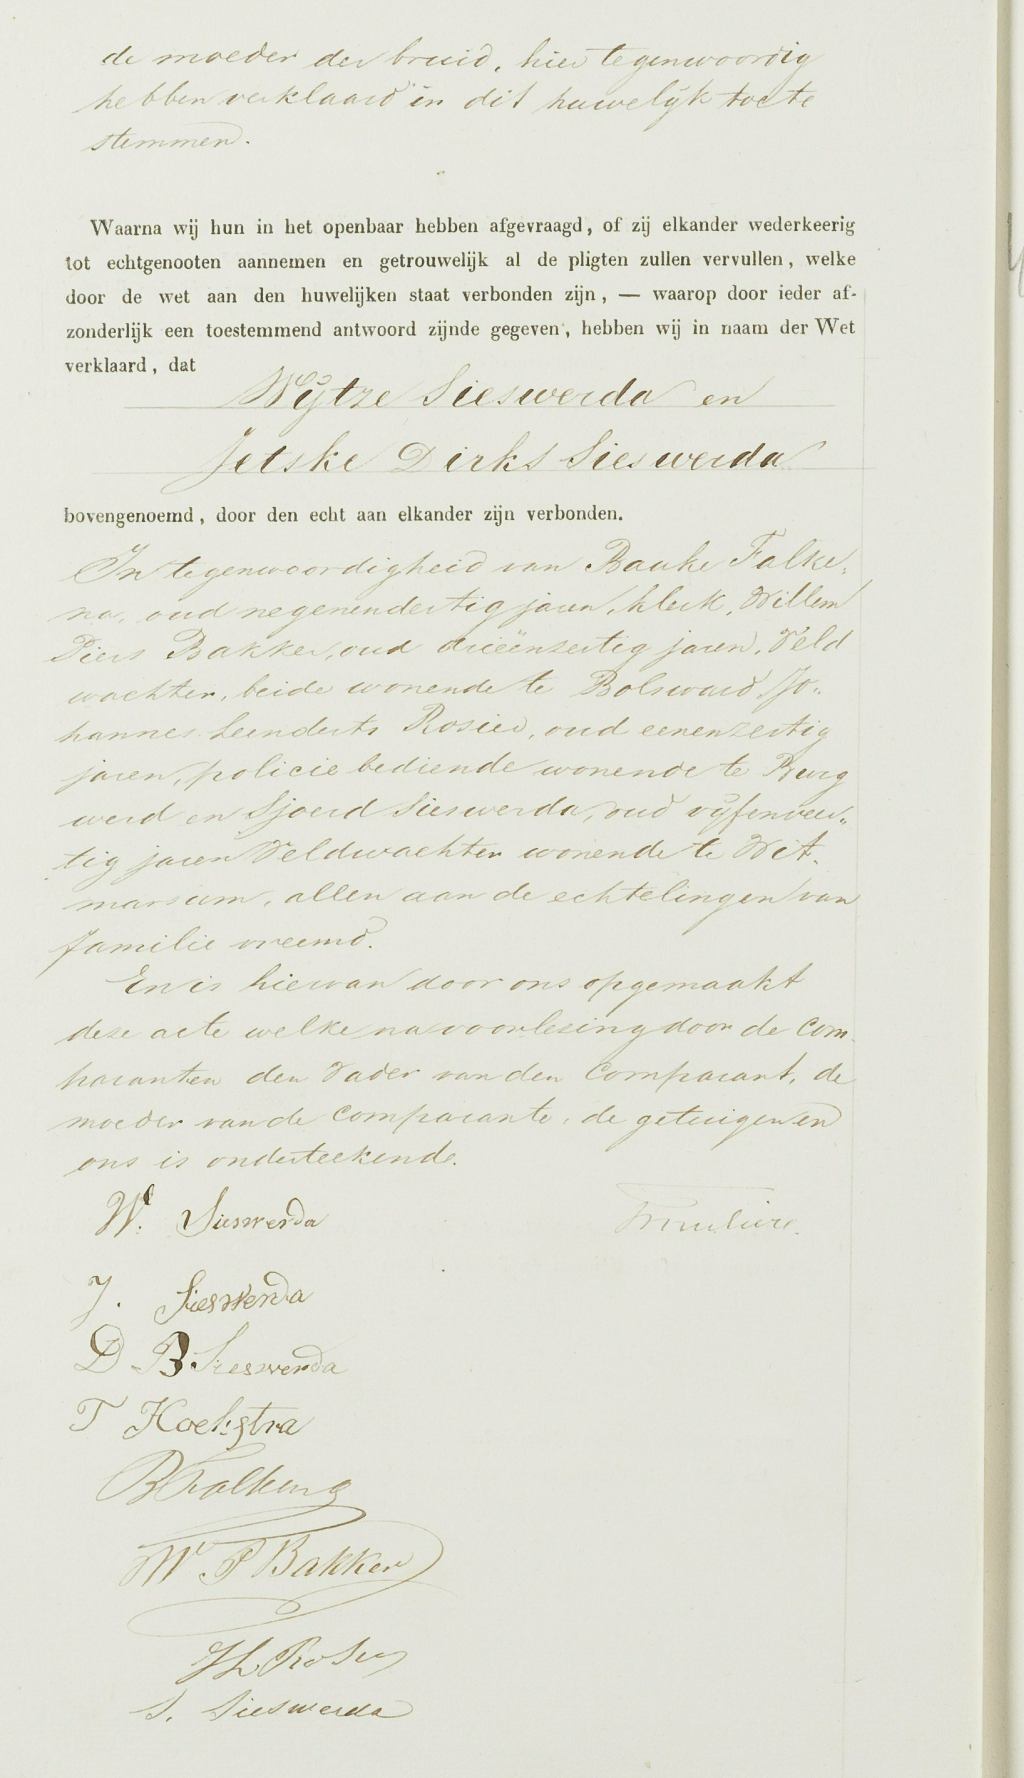 de moeder der bruid, hier tegenwoordig
hebben verklaard in dit huwelijk toe te
stemmen.
Waarna wij hun in het openbaar hebben afgevraagd, of zij elkander wederkeerig
tot echtgenooten aannemen en getrouwelijk al de pligten zullen vervullen, welke
door de wet aan den huwelijken staat verbonden zijn, — waarop door ieder af-
zonderlijk een toestemmend antwoord zijnde gegeven, hebben wij in naam der Wet
verklaard, dat
Wijtze Sieswerda en
Jetske Dirks Sieswerda
bovengenoemd, door den echt aan elkander zijn verbonden.
In tegenwoordigheid van Bauke Falke-
na, oud negenendertig jaren, klerk, Willem
Piers Bakker, oud drieënzestig jaren, Veld
wachter, beide wonende te Bolsward, Jo-
hannes Leenderts Rosier, oud eenenzestig
jaren, policie bediende wonende te Burg
werd en Sjoerd Sieswerda, oud vijfenveer-
tig jaren Veldwachter wonende te Wit-
marsum, allen aan de echtelingen van
familie vreemd.
En is hiervan door ons opgemaakt
deze acte welke na voorlezing door de Com-
paranten den Vader van den Comparant, de
moeder van de Comparante, de getuigen en
ons is onderteekende.
W. Sieswerda
J. Sieswerda
D B Sieswerda
T Hoekstra
B Falkena
W P Bakker
J L Rosier
S. Sieswerda